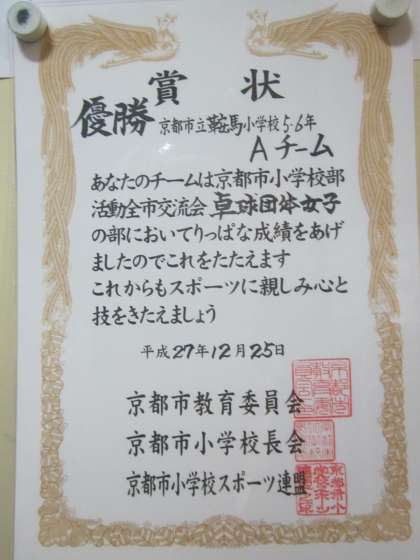 賞状
優勝 京都市立鞍馬小学校5・6年
Aチーム
あなたのチームは京都市小学校部
活動全市交流会 卓球団体女子
の部においてりっぱな成績をあげ
ましたのでこれをたたえます
これからもスポーツに親しみ心と
技をきたえましょう
平成27年12月25日
京都市教育委員会
京都市小学校長会
京都市小学校スポーツ連盟